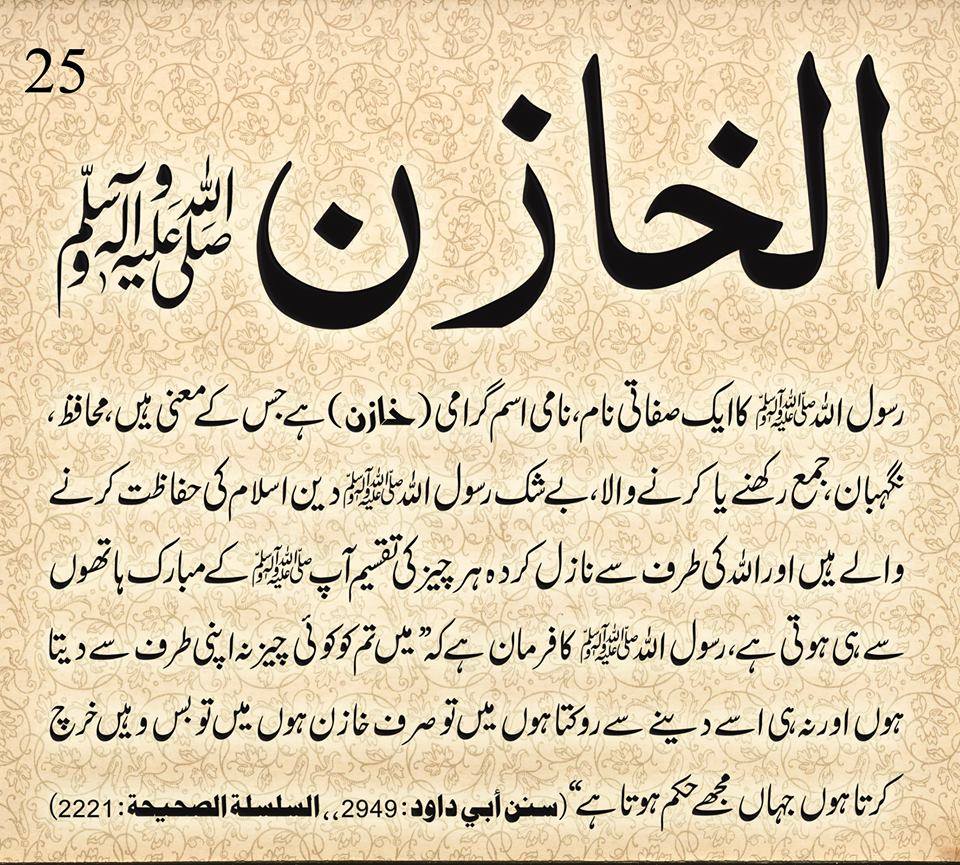 25
الخازن صلی اللہ علیہ وآلہ وسلم
رسول اللہ ﷺ کا ایک صفاتی نام، نامی اسم گرامی (خازن) ہے جس کے معنی ہیں، محافظ،
نگہبان، جمع رکھنے یا کرنے والا، بے شک رسول اللہ ﷺ دین اسلام کی حفاظت کرنے
والے ہیں اور اللہ کی طرف سے نازل کردہ ہر چیز کی تقسیم آپ ﷺ کے مبارک ہاتھوں
سے ہی ہوتی ہے، رسول اللہ ﷺ کا فرمان ہے کہ ”میں تم کو کوئی چیز نہ اپنی طرف سے دیتا
ہوں اور نہ ہی اسے دینے سے روکتا ہوں میں تو صرف خازن ہوں میں تو بس وہیں خرچ
کرتا ہوں جہاں مجھے حکم ہوتا ہے“ (سنن أبي داود: 2949،، السلسلة الصحيحة: 2221)